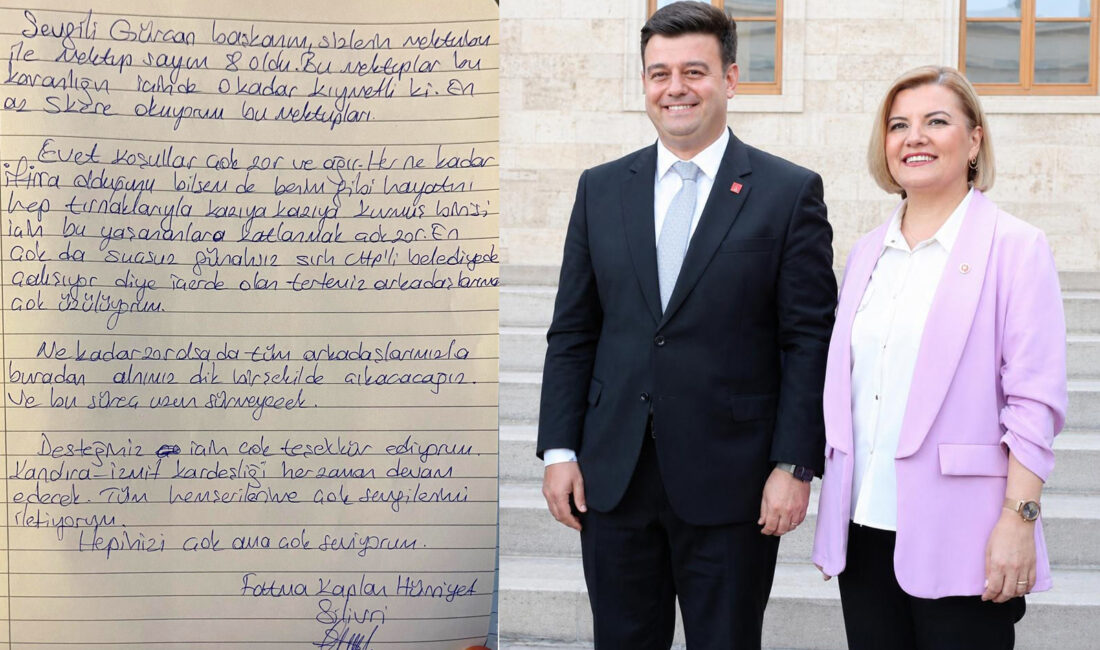 Sevgili Gürcan başkanım, sizlerin mektubu
ile mektup sayım 8 oldu. Bu mektuplar bu
karanlığın içinde o kadar kıymetli ki. En
az 5 kere okuyorum bu mektupları.
Evet koşullar çok zor ve ağır. Her ne kadar
iftira olduğunu bilsem de benim gibi hayatını
hep tırnaklarıyla kazıya kazıya kurmuş birisi
için bu yaşananlara katlanmak çok zor. En
çok da suçsuz günahsız sırf CHP'li belediyede
çalışıyor diye içerde olan tertemiz arkadaşlarıma
çok üzülüyorum.
Ne kadar zor olsa da tüm arkadaşlarımızla
buradan alnımız dik bir şekilde çıkacacağız.
Ve bu süreç uzun sürmeyecek.
Desteğiniz için çok teşekkür ediyorum.
Kandıra-İzmit kardeşliği her zaman devam
edecek. Tüm hemşerilerime çok sevgilerimi
iletiyorum.
Hepinizi çok ama çok seviyorum.
Fatma Kaplan Hürriyet
Silivri